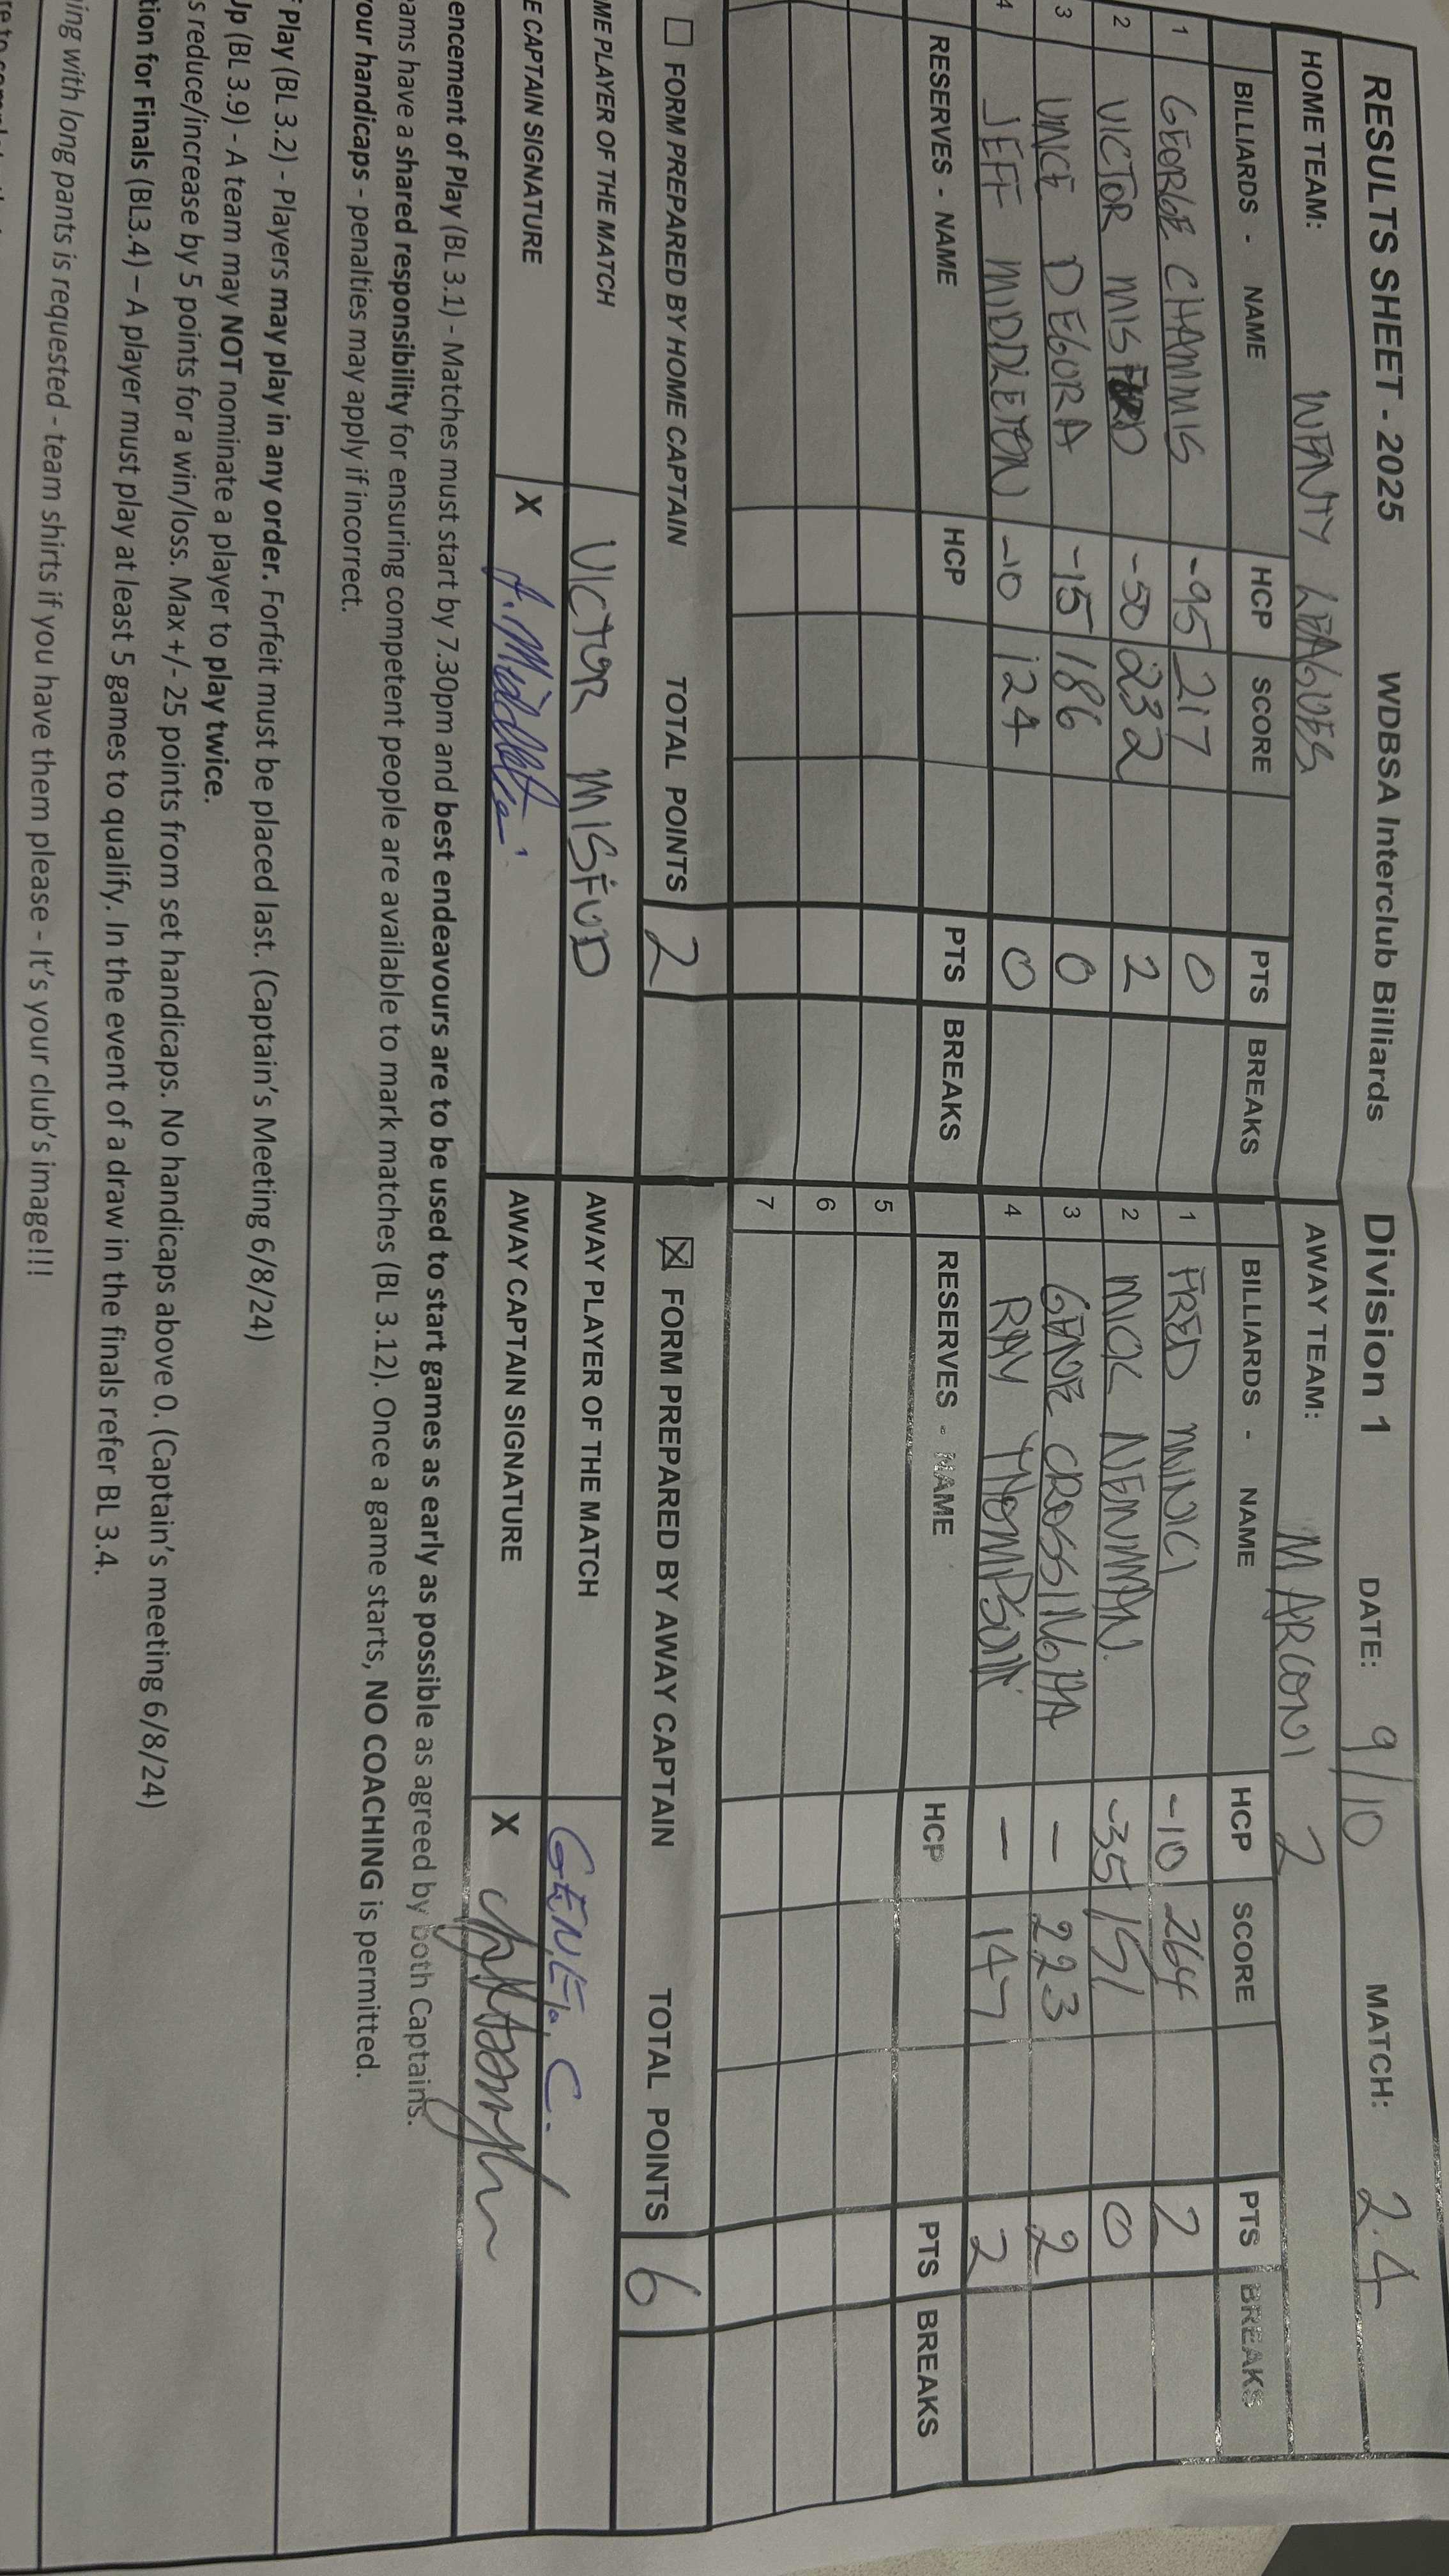 RESULTS SHEET - 2025 WDBSA Interclub Billiards Division 1 DATE: 9/10 MATCH: 2.4
HOME TEAM: WENTY LEAGUES AWAY TEAM: MARCONI 2
BILLIARDS - NAME HCP SCORE PTS BREAKS BILLIARDS - NAME HCP SCORE PTS BREAKS
1 GEORGE CHAMMIS -95 217 0 1 FRED MINICI -10 264 2
2 VICTOR MISFUD -50 232 2 2 MICK NEWMAN. -35 151 0
3 VINCE DEGORA -15 186 0 3 GENE CROSSINGHA - 223 2
4 JEFF MIDDLETON -10 124 0 4 RAY THOMPSON - 147 2
RESERVES - NAME HCP PTS BREAKS RESERVES - NAME HCP PTS BREAKS
5
6
7
☐ FORM PREPARED BY HOME CAPTAIN TOTAL POINTS 2 ☒ FORM PREPARED BY AWAY CAPTAIN TOTAL POINTS 6
ME PLAYER OF THE MATCH VICTOR MISFUD AWAY PLAYER OF THE MATCH GENE. C.
E CAPTAIN SIGNATURE X AWAY CAPTAIN SIGNATURE X
encement of Play (BL 3.1) - Matches must start by 7.30pm and best endeavours are to be used to start games as early as possible as agreed by both Captains.
ams have a shared responsibility for ensuring competent people are available to mark matches (BL 3.12). Once a game starts, NO COACHING is permitted.
our handicaps - penalties may apply if incorrect.
f Play (BL 3.2) - Players may play in any order. Forfeit must be placed last. (Captain's Meeting 6/8/24)
Up (BL 3.9) - A team may NOT nominate a player to play twice.
s reduce/increase by 5 points for a win/loss. Max +/- 25 points from set handicaps. No handicaps above 0. (Captain's meeting 6/8/24)
tion for Finals (BL3.4) – A player must play at least 5 games to qualify. In the event of a draw in the finals refer BL 3.4.
ing with long pants is requested - team shirts if you have them please - It's your club's image!!!